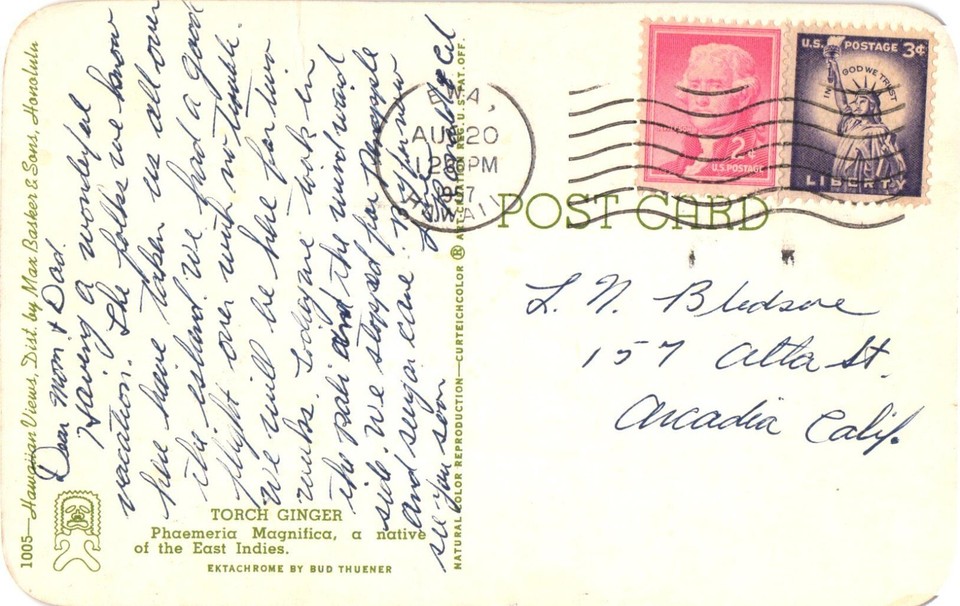 1005—Hawaiian Views, Dist. by Max Basker & Sons, Honolulu
Dear Mom & Dad
Having a wonderful
vacation. The folks we know
here have taken us all over
the island. We had a good
flight over with no trouble.
We will be here for two
weeks. Today we took in
the pali and the wind ward
side. We stopped for Pineapple
and sugar cane. Bye for now
see you soon
TORCH GINGER
Phaemeria Magnifica, a native
of the East Indies.
EKTACHROME BY BUD THUENER
NATURAL COLOR REPRODUCTION—CURTEICHCOLOR ® ART-CREATION REG. U.S. PAT. OFF.
EWA,
AUG 20
PM
1957
HAWAII
2¢
U.S. POSTAGE
U.S. POSTAGE 3¢
IN GOD WE TRUST
LIBERTY
POST CARD
L. N. Bledsoe
157 Alta St.
Arcadia Calif.